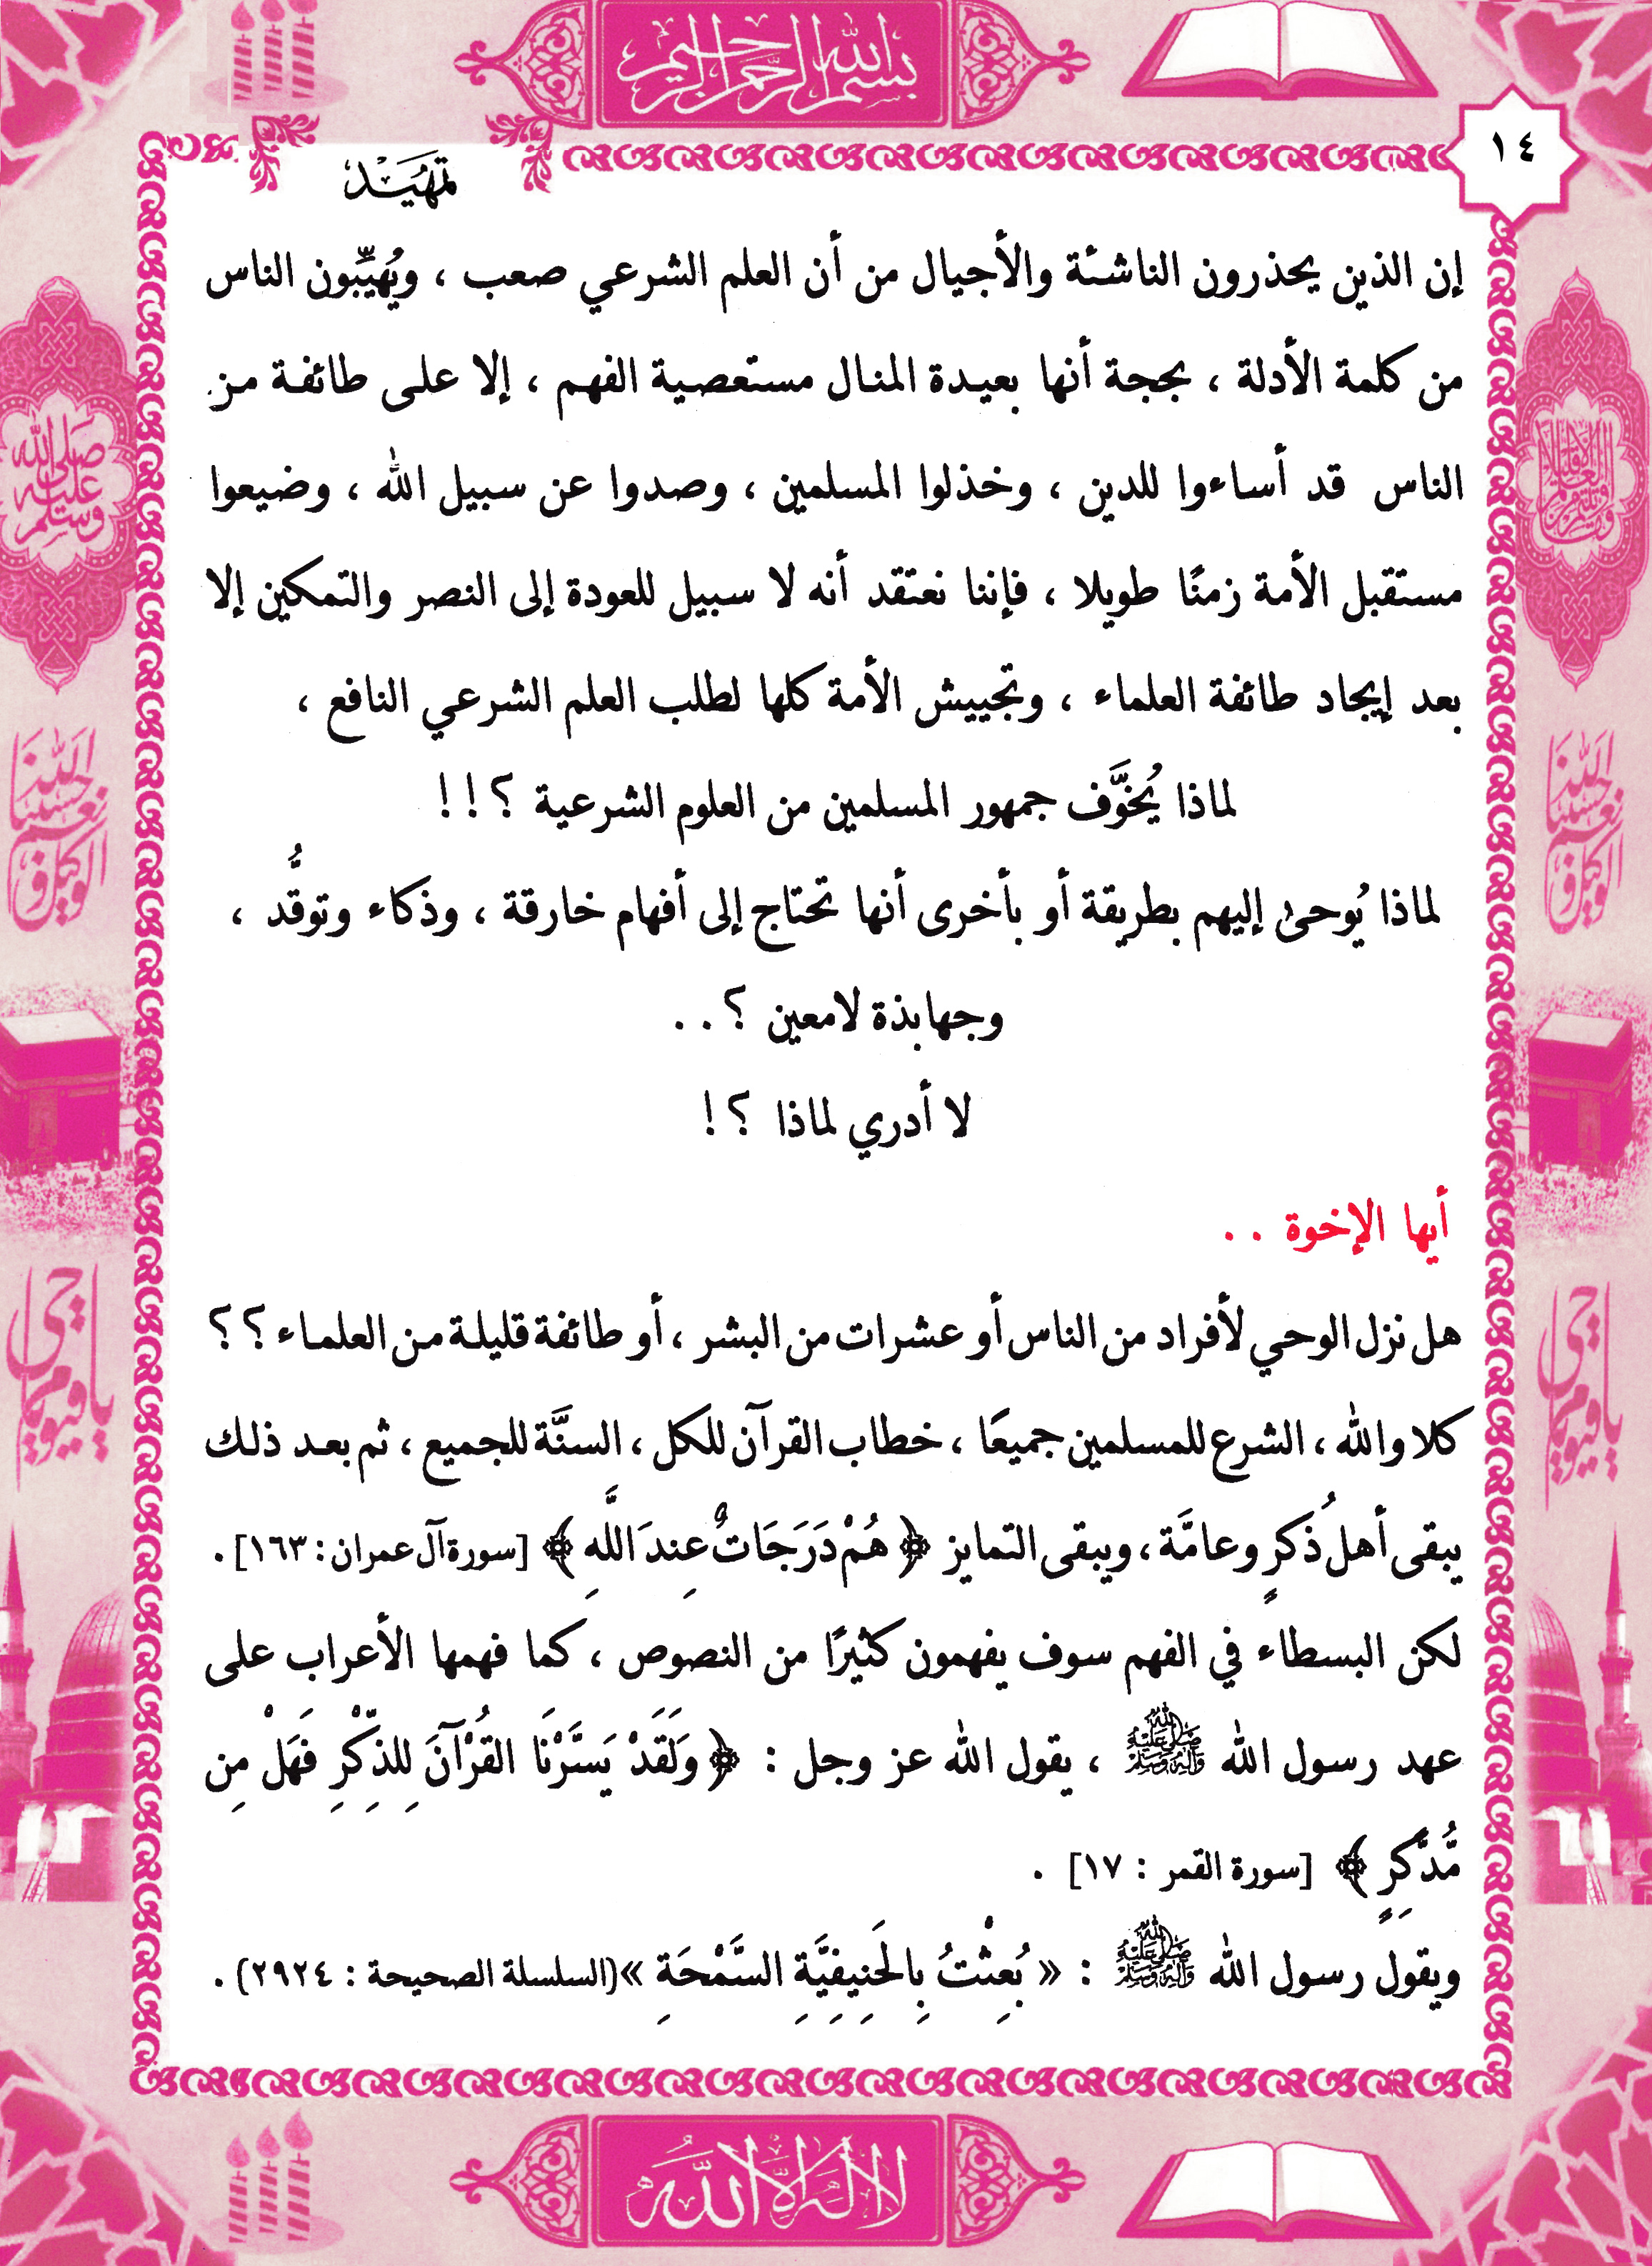 بسم الله الرحمن الرحيم
١٤
تمهيد
إن الذين يحذرون الناشئة والأجيال من أن العلم الشرعي صعب ، ويُهيِّبون الناس
من كلمة الأدلة ، بحجة أنها بعيدة المنال مستعصية الفهم ، إلا على طائفة من
الناس قد أساءوا للدين ، وخذلوا المسلمين ، وصدوا عن سبيل الله ، وضيعوا
مستقبل الأمة زمنًا طويلا ، فإننا نعتقد أنه لا سبيل للعودة إلى النصر والتمكين إلا
بعد إيجاد طائفة العلماء ، وتجييش الأمة كلها لطلب العلم الشرعي النافع ،
لماذا يُخوَّف جمهور المسلمين من العلوم الشرعية ؟ ! !
لماذا يُوحىٰ إليهم بطريقة أو بأخرى أنها تحتاج إلى أفهام خارقة ، وذكاء وتوقُّد ،
وجهابذة لامعين ؟ . .
لا أدري لماذا ؟ !
أيها الإخوة . .
هل نزل الوحي لأفراد من الناس أو عشرات من البشر ، أو طائفة قليلة من العلماء ؟ ؟
كلا والله ، الشرع للمسلمين جميعًا ، خطاب القرآن للكل ، السنَّة للجميع ، ثم بعد ذلك
يبقى أهل ذُكرٍ وعامَّة ، ويبقى التمايز ﴿ هُمْ دَرَجَاتٌ عِندَ اللَّهِ ﴾ [سورة آل عمران : ١٦٣] .
لكن البسطاء في الفهم سوف يفهمون كثيرًا من النصوص ، كما فهمها الأعراب على
عهد رسول الله ﷺ ، يقول الله عز وجل : ﴿ وَلَقَدْ يَسَّرْنَا القُرْآنَ لِلذِّكْرِ فَهَلْ مِن
مُّدَّكِرٍ ﴾ [سورة القمر : ١٧] .
ويقول رسول الله ﷺ : « بُعِثْتُ بِالحَنِيفِيَّةِ السَّمْحَةِ »(السلسلة الصحيحة : ٢٩٢٤) .
صلى الله عليه وسلم
حسبنا الله ونعم الوكيل
يا حي يا قيوم
حسبنا الله ونعم الوكيل
يا حي يا قيوم
لا إله إلا الله